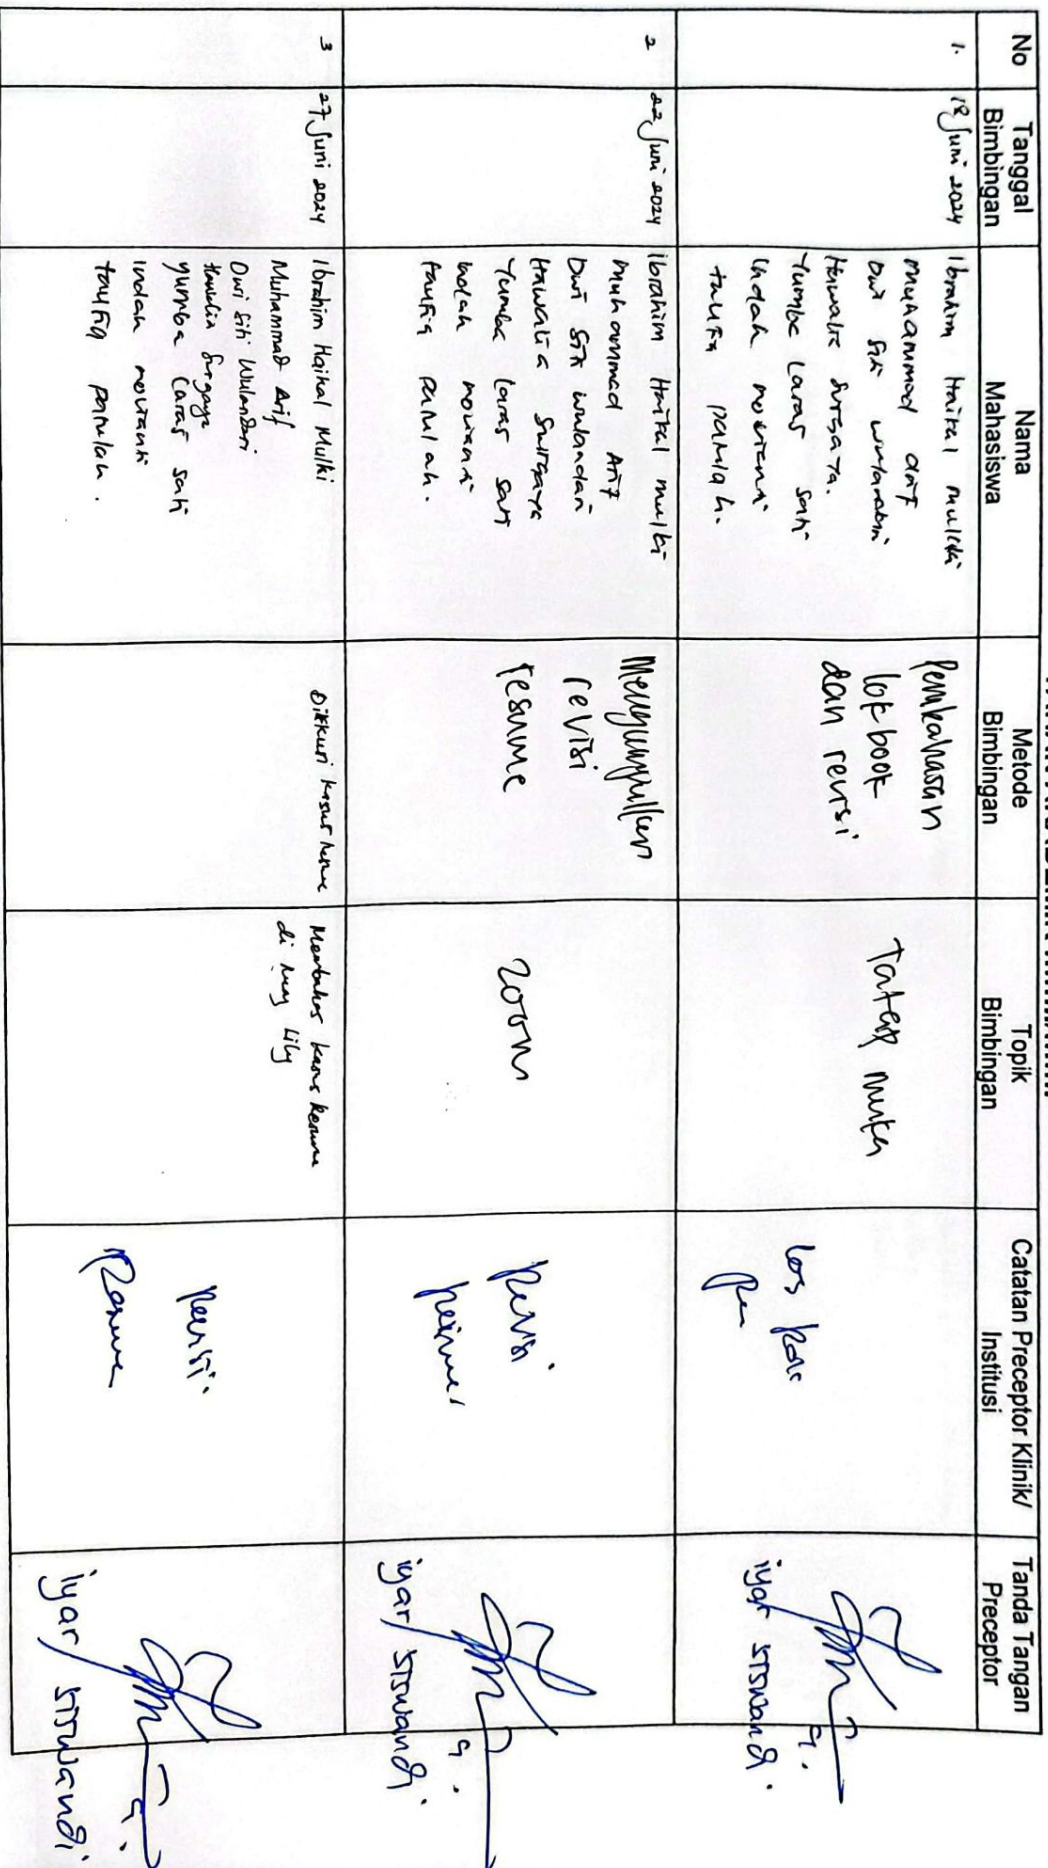 No
Tanggal
Bimbingan
Nama
Mahasiswa
Metode
Bimbingan
Topik
Bimbingan
Catatan Preceptor Klinik/
Institusi
Tanda Tangan
Preceptor
1.
18 Juni 2024
Ibrahim Haikal Mulki
Muhammad Arif
Dwi Siti Wulandari
Hawalia Surgaya.
Yumba Laras Sati
Indah Novianti
Taufiq Pamilah.
Pembahasan
lok book
dan revisi
Tatap muka
iyar siswandi.
2
22 Juni 2024
Ibrahim Haikal Mulki
Muhammad Arif
Dwi Siti Wulandari
Hawalia Surgaya
Yumba Laras Sati
Indah Novianti
Taufiq Pamilah.
Mengumpulkan
revisi
resume
zoom
Revisi
iyar siswandi.
3
27 Juni 2024
Ibrahim Haikal Mulki
Muhammad Arif
Dwi Siti Wulandari
Hawalia Surgaya
Yumba Laras Sati
Indah Novianti
Taufiq Pamilah.
Diskusi kasus resume
Membahas kasus resume
di ruang Lily
Revisi.
Resume
iyar siswandi